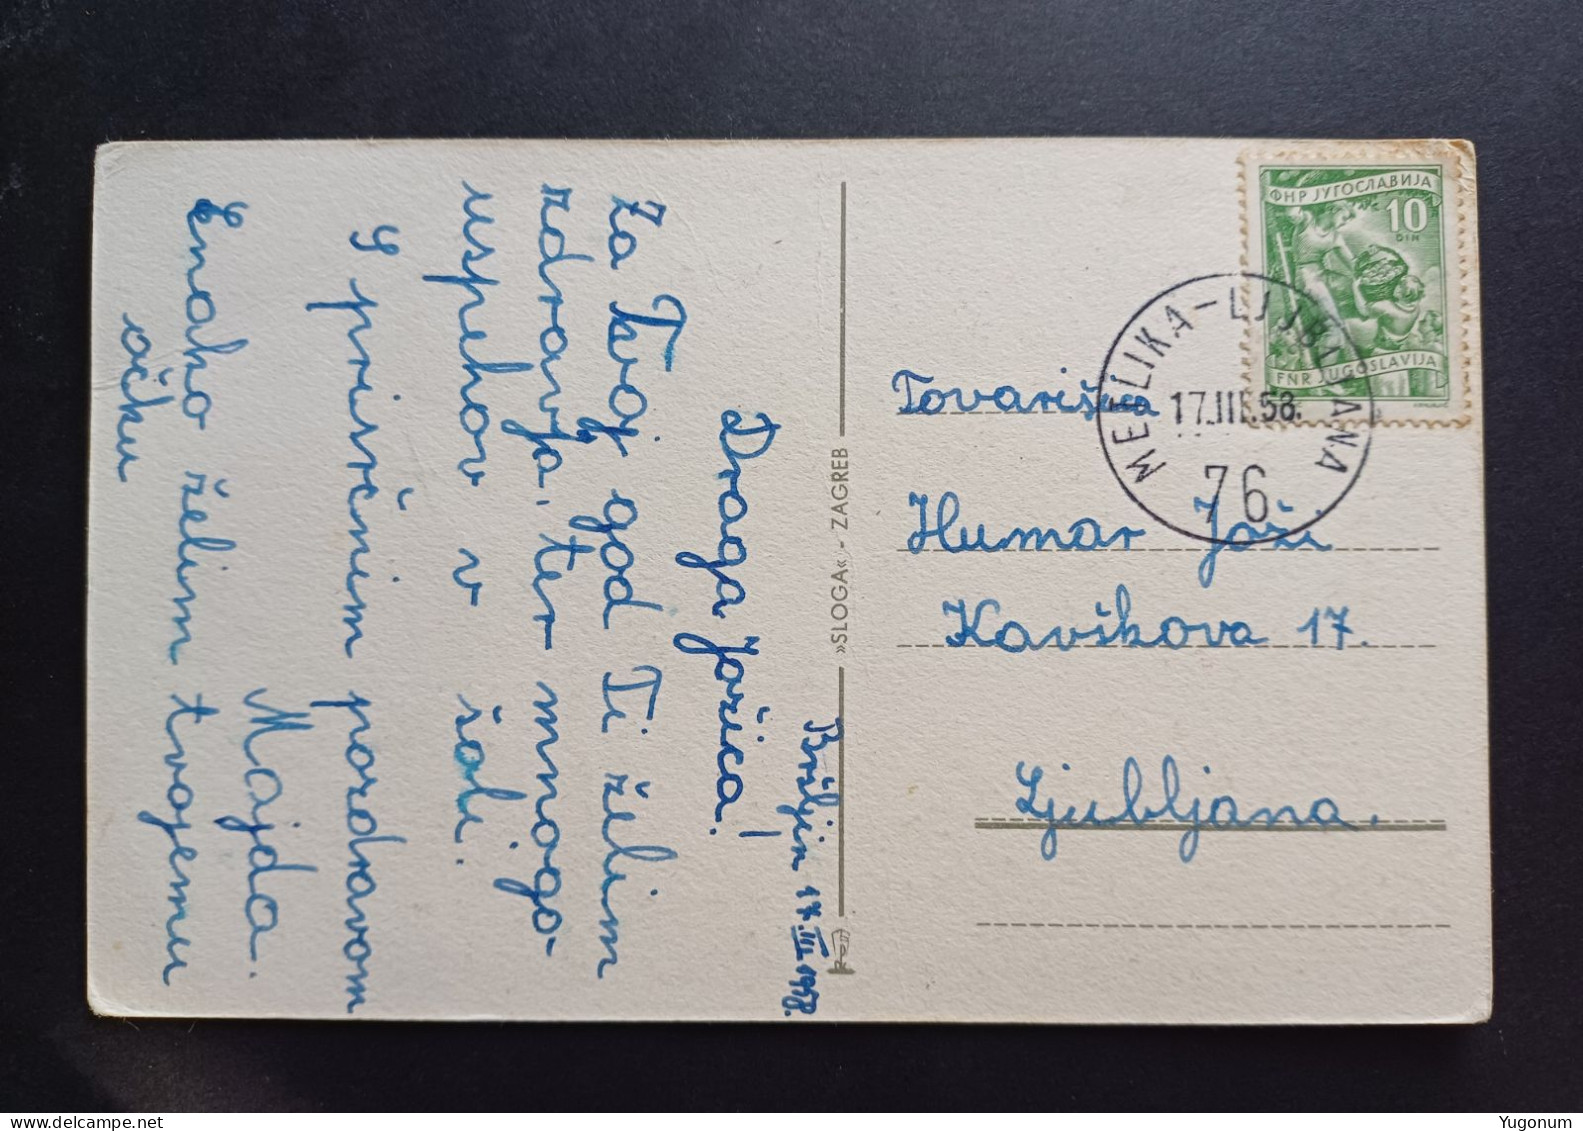 Bršljin 17. III 1958.
Draga Jožica!
Za Tvoj god Ti želim
zdravja, ter mnogo
uspehov v šoli.
S prisrčnim pozdravom
Majda.
Enako želim tvojemu
očku
»SLOGA« - ZAGREB
ФНР ЈУГОСЛАВИЈА
10
DIN
FNR JUGOSLAVIJA
METLIKA - LJUBLJANA
17.III.58.
76
Tovarišica
Humar Joži
Kavškova 17.
Ljubljana.
Yugonum